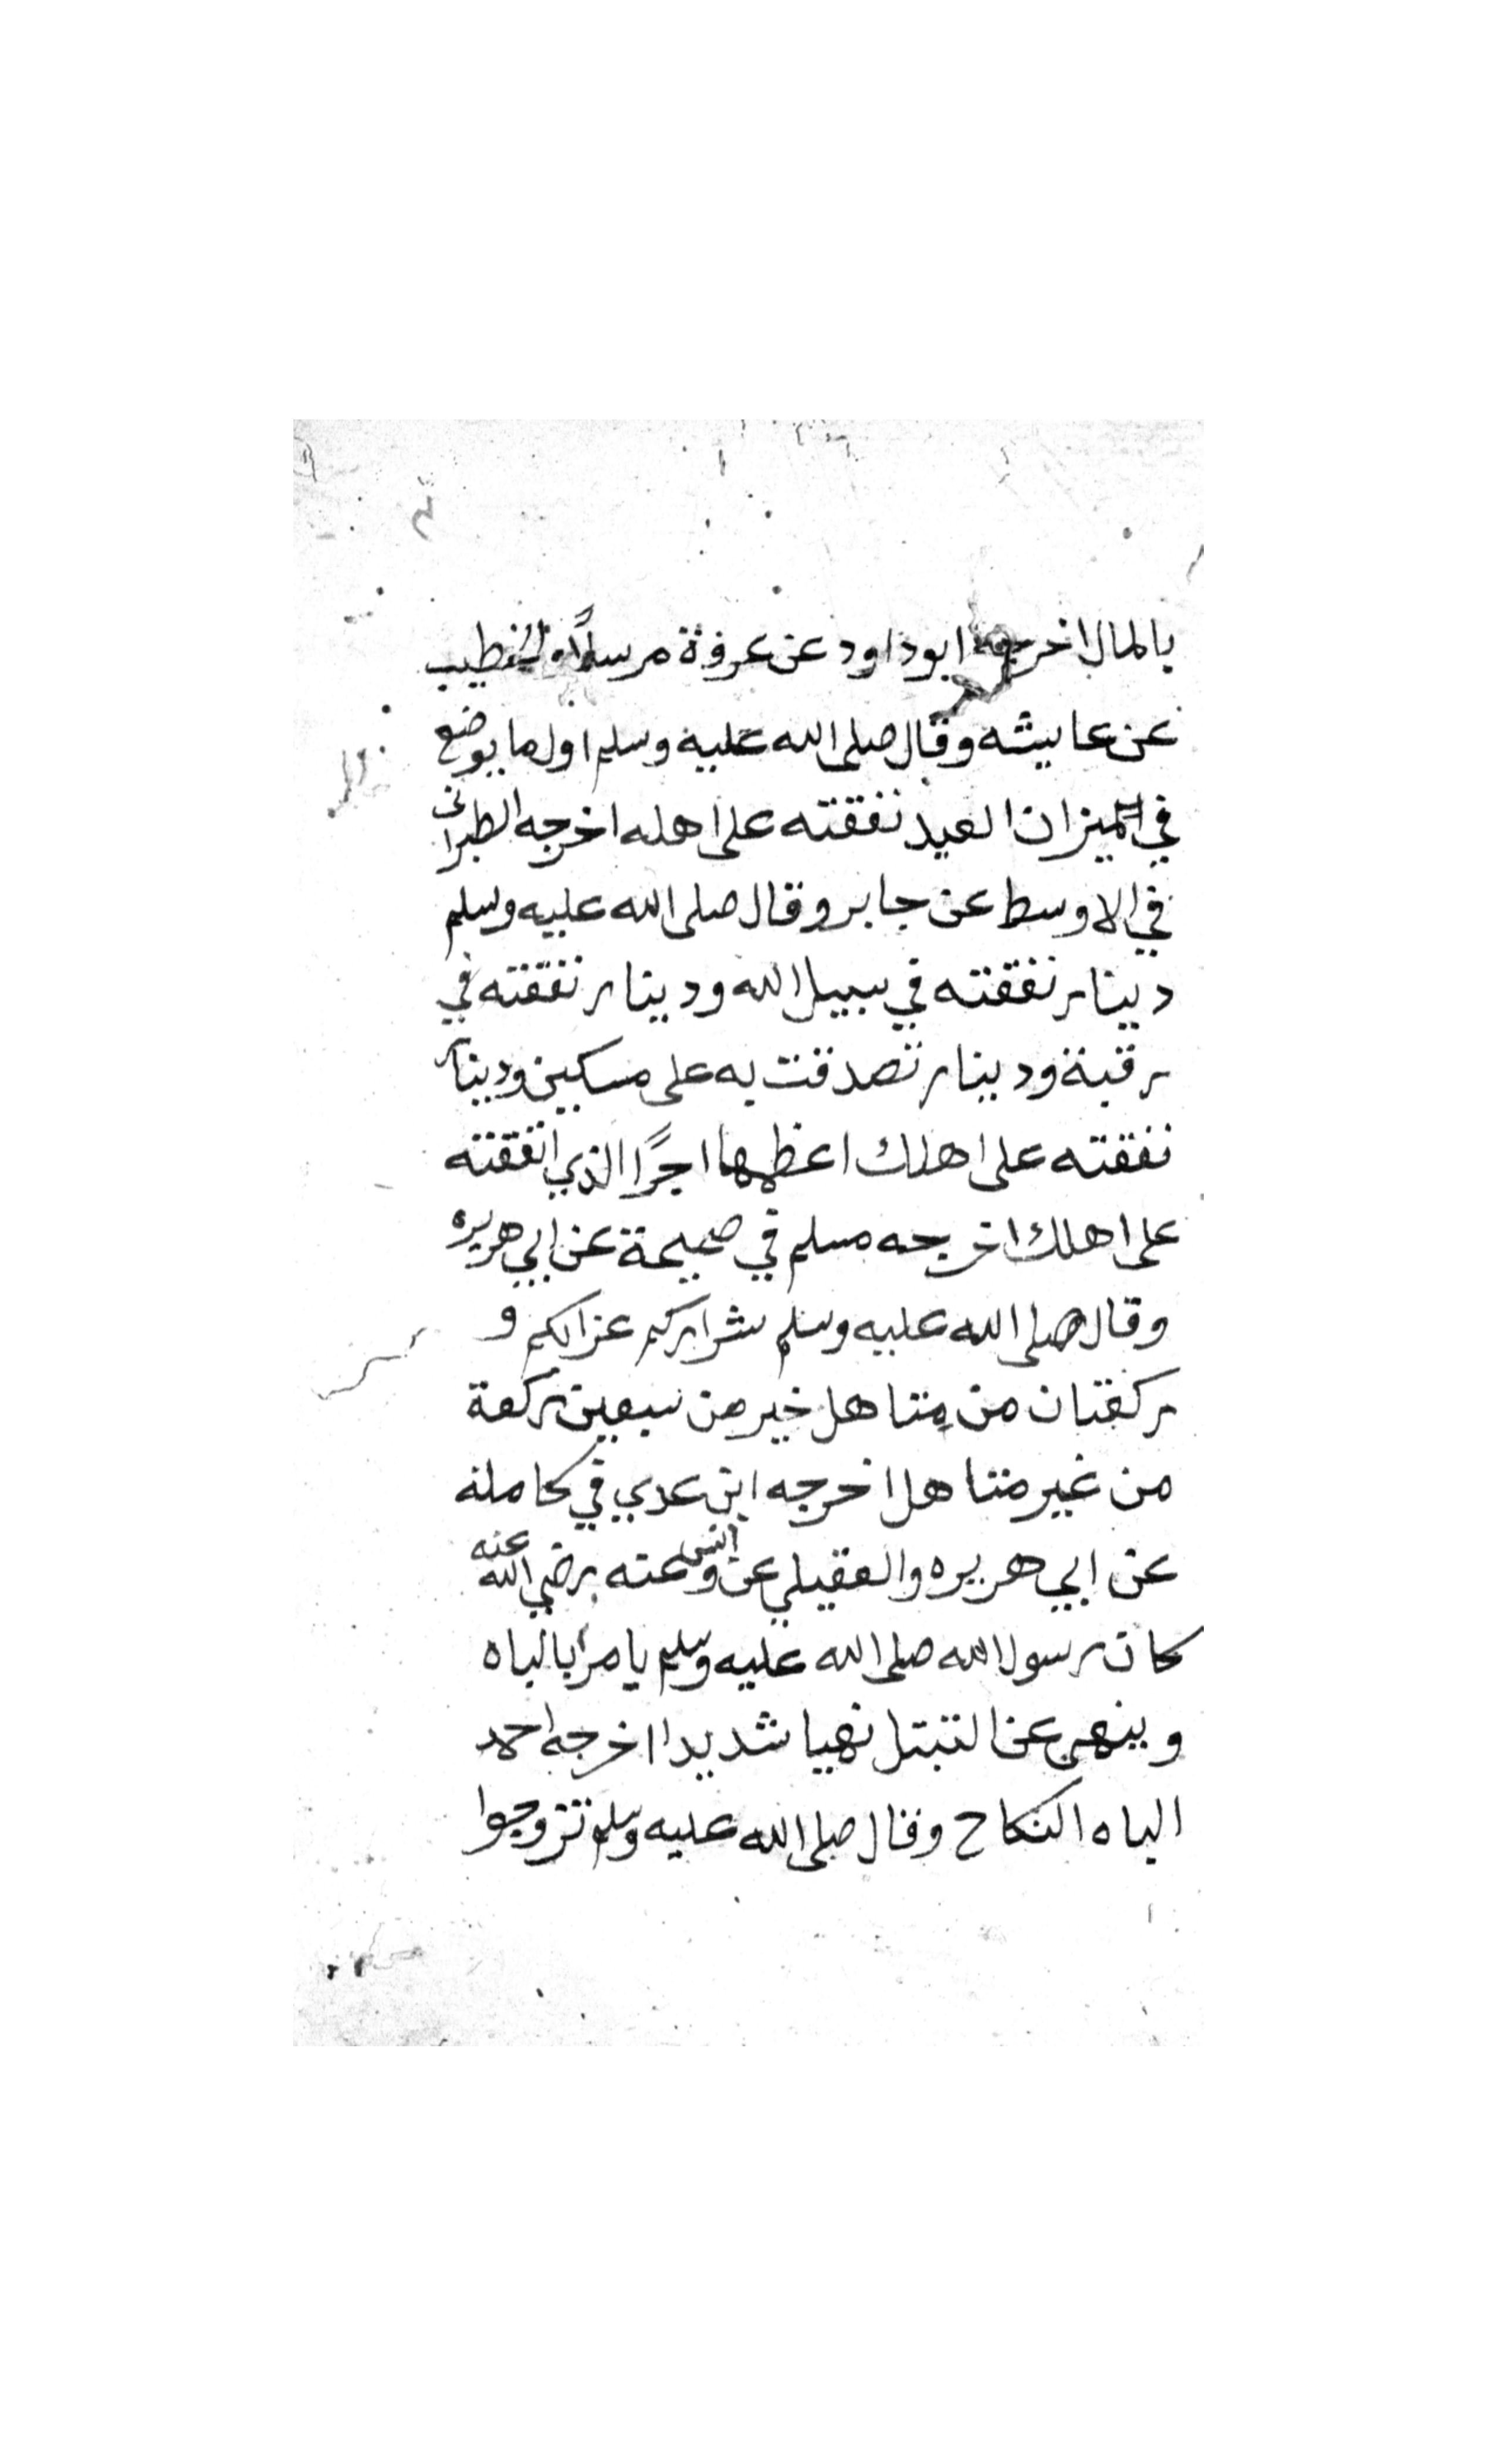 بالمال اخرجه ابوداود عن عروة مرسلاً والخطيب
عن عايشه وقال صلى الله عليه وسلم اول ما يوضع
في الميزان العبد نفقته على اهله اخرجه الطبرانى
في الاوسط عن جابر وقال صلى الله عليه وسلم
دينار نفقته في سبيل الله ودينار نفقته في
رقبة ودينار تصدقت به على مسكين ودينار
نفقته على اهلك اعظمها اجرًا الذي انفقته
على اهلك اخرجه مسلم في صحيحة عن ابي هريره
وقال صلى الله عليه وسلم شراركم عزابكم و
ركعتان من متاهل خير من سبعين ركعة
من غير متاهل اخرجه ابن عدي في كاملة
عن ابي هريره والعقيلي عن انس وعنه رضي الله عنه
كان رسول الله صلى الله عليه وسلم يامر بالباه
وينهى عن التبتل نهيا شديدا اخرجه احمد
الباه النكاح وقال صلى الله عليه وسلم تزوجوا